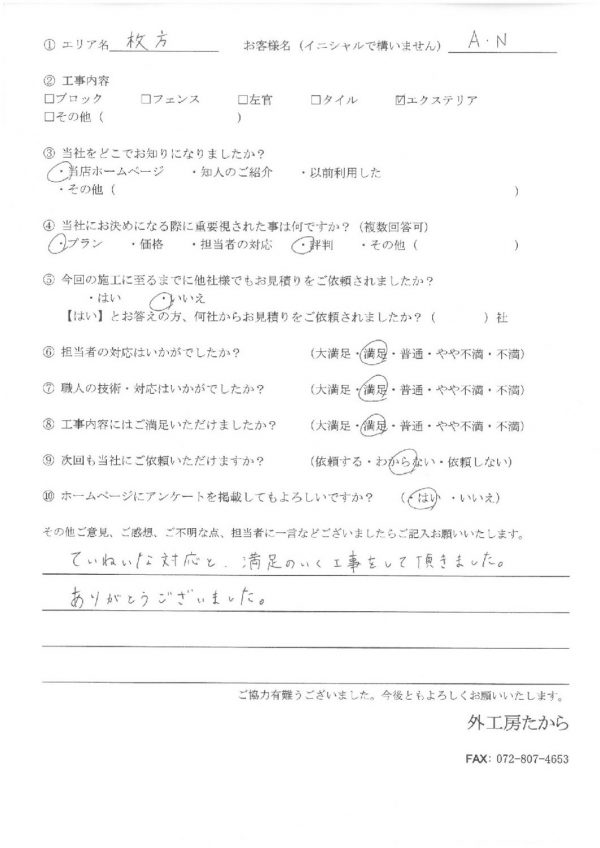 ① エリア名 枚方 お客様名（イニシャルで構いません） A・N
② 工事内容
□ブロック □フェンス □左官 □タイル ☑エクステリア
□その他（ ）
③ 当社をどこでお知りになりましたか？
・当店ホームページ ・知人のご紹介 ・以前利用した
・その他（ ）
④ 当社にお決めになる際に重要視された事は何ですか？（複数回答可）
・プラン ・価格 ・担当者の対応 ・評判 ・その他（ ）
⑤ 今回の施工に至るまでに他社様でもお見積りをご依頼されましたか？
・はい ・いいえ
【はい】とお答えの方、何社からお見積りをご依頼されましたか？（ ）社
⑥ 担当者の対応はいかがでしたか？ （大満足・満足・普通・やや不満・不満）
⑦ 職人の技術・対応はいかがでしたか？ （大満足・満足・普通・やや不満・不満）
⑧ 工事内容にはご満足いただけましたか？ （大満足・満足・普通・やや不満・不満）
⑨ 次回も当社にご依頼いただけますか？ （依頼する・わからない・依頼しない）
⑩ ホームページにアンケートを掲載してもよろしいですか？ （・はい ・いいえ）
その他ご意見、ご感想、ご不明な点、担当者に一言などございましたらご記入お願いいたします。
ていねいな対応と、満足のいく工事をして頂きました。
ありがとうございました。
ご協力有難うございました。今後ともよろしくお願いいたします。
外工房たから
FAX: 072-807-4653